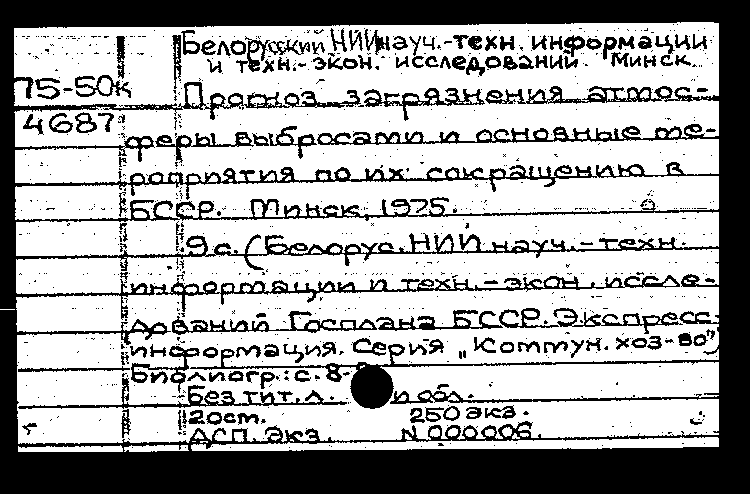 Белорусский НИИ науч.-техн. информации
и техн.-экон. исследований. Минск.
75-50к
Прогноз загрязнения атмос-
4687
феры выбросами и основные ме-
роприятия по их сокращению в
БССР. Минск, 1975.
9с. (Белорус. НИИ науч.-техн.
информации и техн.-экон. иссле-
дований Госплана БССР. Экспресс-
информация. Серия „Коммун. хоз-во")
Библиогр.: с. 8-
Без тит. л. и обл.
20ст. 250 экз.
ДСП. Экз. N 000006.